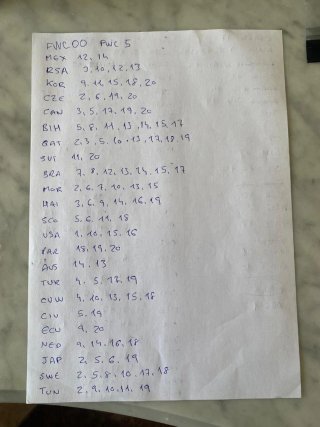 FWC00 FWC 5
MEX 12, 14
RSA 3, 10, 12, 13
KOR 9, 11, 15, 18, 20
CZE 2, 6, 19, 20
CAN 3, 5, 17, 19, 20
BIH 5, 8, 11, 13, 14, 15, 17
QAT 2, 3, 5, 10, 13, 17, 18, 19
SUI 11, 20
BRA 7, 8, 12, 13, 14, 15, 17
MOR 2, 6, 7, 10, 13, 15
HAI 3, 6, 9, 14, 16, 19
SCO 5, 6, 11, 18
USA 1, 10, 15, 16
PAR 18, 19, 20
AUS 14, 13
TUR 4, 5, 13, 19
CUW 4, 10, 13, 15, 18
CIV 5, 19
ECU 9, 20
NED 9, 14, 16, 18
JAP 2, 5, 6, 19
SWE 2, 5, 8, 10, 17, 18
TUN 2, 9, 10, 11, 19